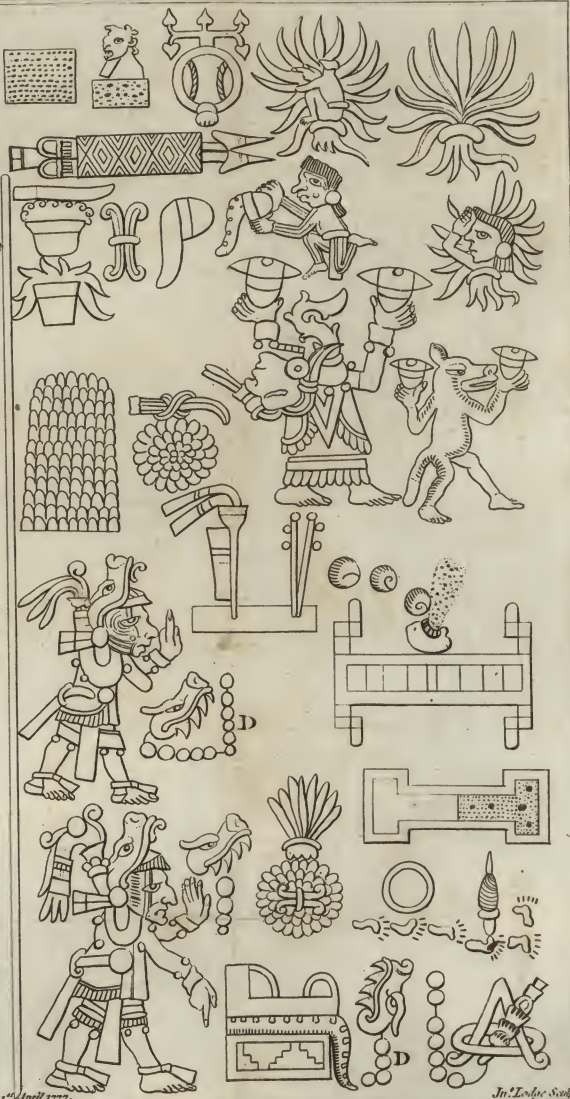 D
D
April 1777.
Jnº. Lodge Sculp